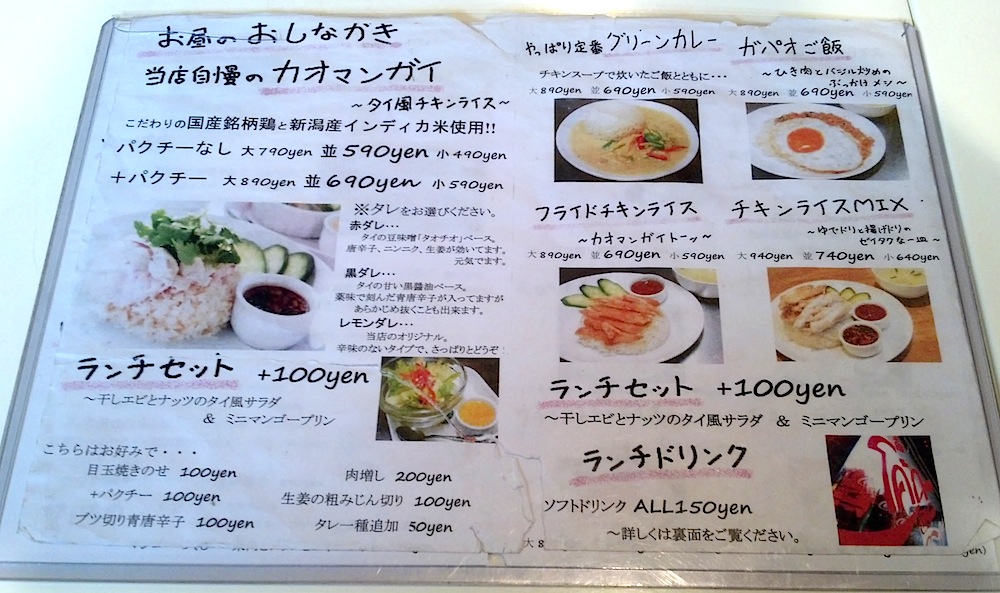 お昼のおしながき
当店自慢のカオマンガイ
～タイ風チキンライス～
こだわりの国産銘柄鶏と新潟産インディカ米使用!!
パクチーなし 大790yen 並590yen 小490yen
＋パクチー 大890yen 並690yen 小590yen
※タレをお選びください。
赤ダレ・・・
タイの豆味噌「タオチオ」ベース。
唐辛子、ニンニク、生姜が効いてます。
元気でます。
黒ダレ・・・
タイの甘い黒醤油ベース。
薬味で刻んだ青唐辛子が入ってますが
あらかじめ抜くことも出来ます。
レモンダレ・・・
当店のオリジナル。
辛味のないタイプで、さっぱりとどうぞ
ランチセット +100yen
～干しエビとナッツのタイ風サラダ
＆ ミニマンゴープリン
こちらはお好みで・・・
目玉焼きのせ 100yen
肉増し 200yen
+パクチー 100yen
生姜の粗みじん切り 100yen
ブツ切り青唐辛子 100yen
タレ一種追加 50yen
やっぱり定番グリーンカレー
チキンスープで炊いたご飯とともに・・・
大890yen 並690yen 小590yen
ガパオご飯
～ひき肉とバジル炒めの
ぶっかけメシ～
大890yen 並690yen 小590yen
フライドチキンライス
～カオマンガイトーッ～
大890yen 並690yen 小590yen
チキンライスMIX
～ゆでドリと揚げドリの
ゼイタクな一皿～
大940yen 並740yen 小640yen
ランチセット +100yen
～干しエビとナッツのタイ風サラダ ＆ ミニマンゴープリン
ランチドリンク
ソフトドリンク ALL150yen
～詳しくは裏面をご覧ください。
大8
yen)